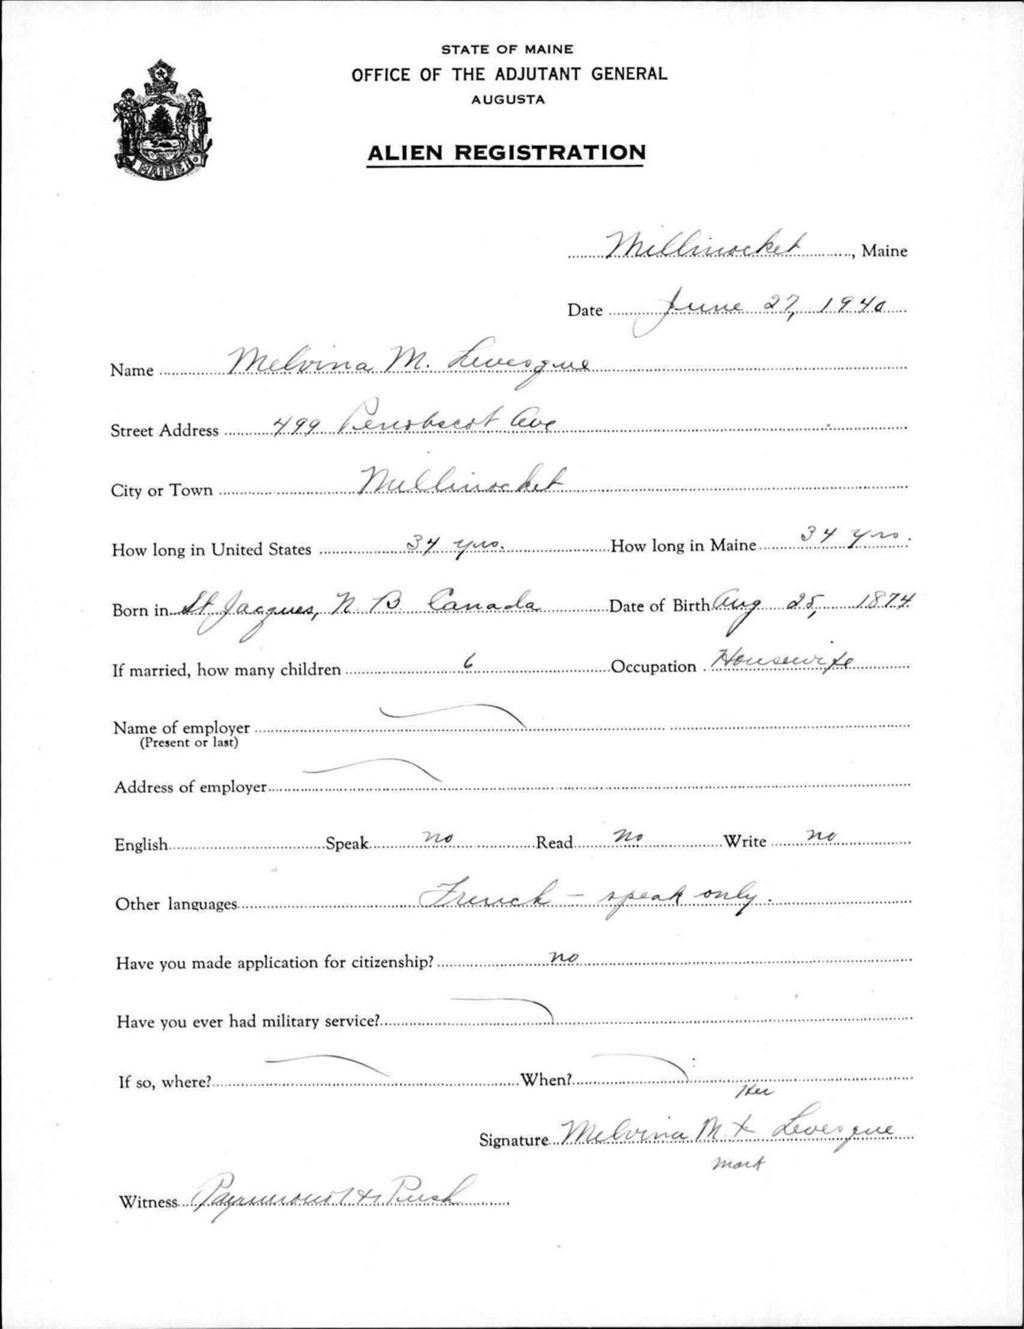 STATE OF MAINE
OFFICE OF THE ADJUTANT GENERAL
AUGUSTA
ALIEN REGISTRATION
MAINE
Millinocket, Maine
Date June 27, 1940
Name Melvina M. Levesque
Street Address 499 Penobscot Ave
City or Town Millinocket
How long in United States 34 yrs. How long in Maine 34 yrs.
Born in St Jacques, N B Canada Date of Birth Aug 25, 1874
If married, how many children 6 Occupation Housewife
Name of employer
(Present or last)
Address of employer
English Speak no Read no Write no
Other languages French - speak only.
Have you made application for citizenship? no
Have you ever had military service?
If so, where? When?
Her
Signature Melvina M X Levesque
mark
Witness Raymond H Rush